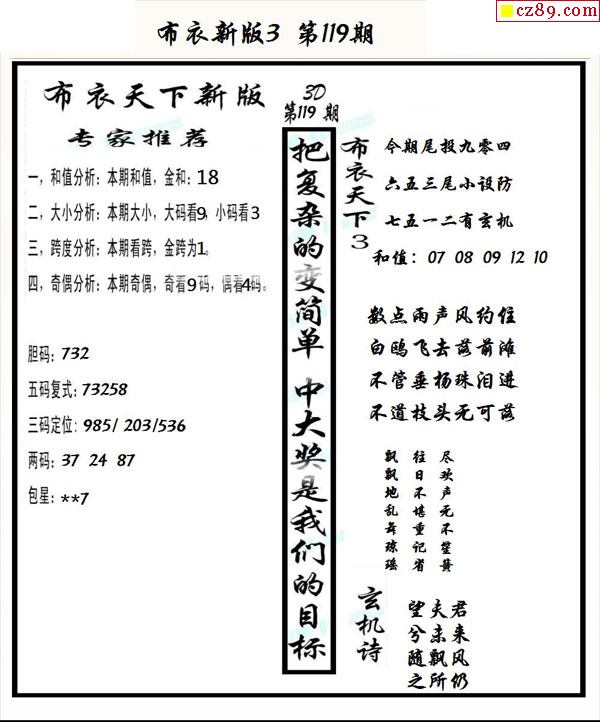 cz89.com
布衣新版3 第119期
布衣天下新版
专家推荐
一，和值分析：本期和值，金和：18
二，大小分析：本期大小，大码看9，小码看3
三，跨度分析：本期看跨，金跨为1。
四，奇偶分析：本期奇偶，奇看9码，偶看4码。
胆码：732
五码复式：73258
三码定位：985/ 203/536
两码：37 24 87
包星：**7
3D
第119 期
把复杂的变简单 中大奖是我们的目标
布衣天下3
今期尾投九零四
六五三尾小设防
七五一二有玄机
和值：07 08 09 12 10
数点雨声风约住
白鸥飞去落前滩
不管垂杨珠泪进
不道枝头无可落
飘飘地乱舞琼瑶
往日不堪重记省
尽欢声无不笙簧
玄机诗
望夫君
兮未来
随飘风
之所仍